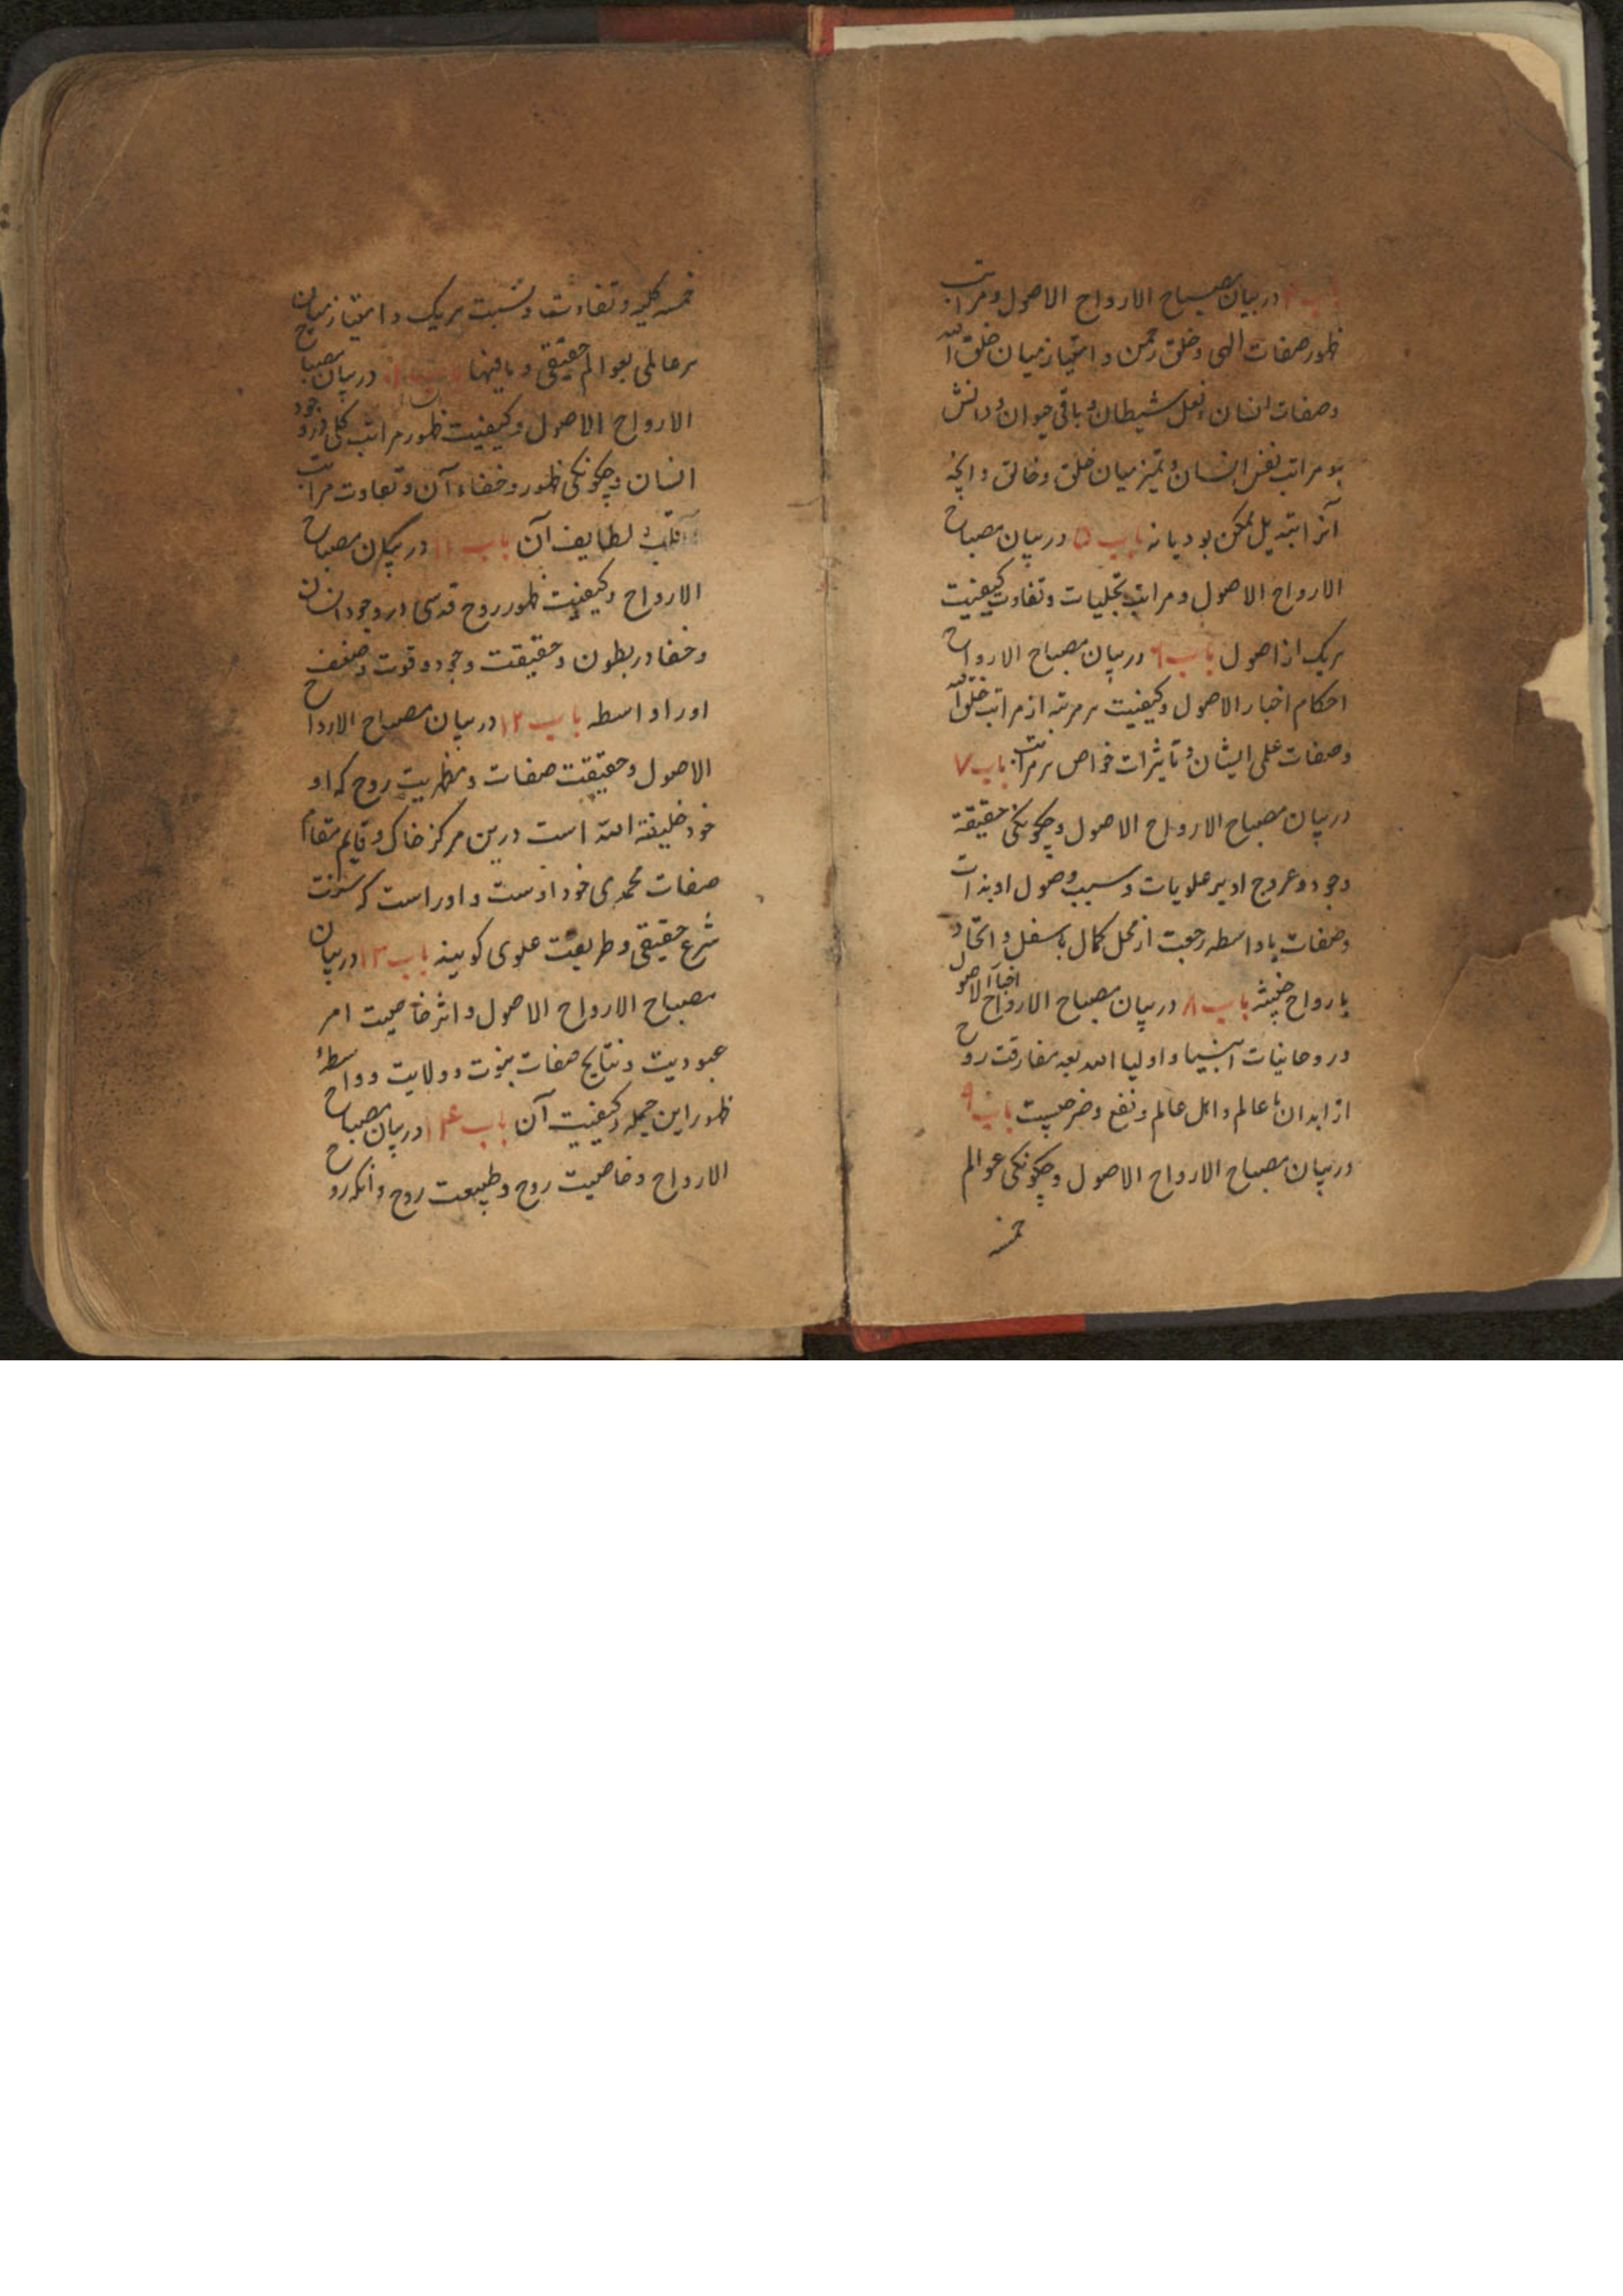 باب ۴ در بیان مصباح الارواح الاصول و مراتب
ظهور صفات الهی و خلق رحمن و امتیاز میان خلق الله
و صفات انسان و فعل شیطان و باقی حیوان و دانش
بو مراتب نفس انسان و تمیز میان خلق و خالق و انچه
آنرا تبدیل ممکن بود یا نه باب ۵ در بیان مصباح
الارواح الاصول و مراتب تجلیات و تفاوت کیفیت
هریک از اصول باب ۶ در بیان مصباح الارواح
احکام اخبار الاصول و کیفیت هر مرتبه از مراتب خلق الله
و صفات علی ایشان و تاثیرات خواص هر مراتب باب ۷
در بیان مصباح الارواح الاصول و چکونکی حقیقة
وجود و عروج او بر علویات و سبب وصول او بذات
و صفات یا واسطه رجعت از محل کمال باسفل و اتحاد
بارواح خبیثه باب ۸ در بیان مصباح الارواح اخبار الاصول
در روحانیات انبیا و اولیا الله بعد مفارقت روح
از ابدان با عالم و اهل عالم و نفع و ضر چیست باب ۹
در بیان مصباح الارواح الاصول و چکونکی عوالم
خمسه
خمسه کلیه و تفاوت و نسبت هریک و امتیاز میان
هر عالمی بعوالم حقیقی و مافیها در بیان مصباح
الارواح الاصول و کیفیت ظهور مراتب کلی در وجود
انسان و چکونکی ظهور و خفاء آن و تفاوت مراتب
لطایف آن باب ۱۱ در بیان مصباح
الارواح و کیفیت ظهور روح قدسی در وجود انسان
و خفا در بطون و حقیقت وجود و قوت و ضعف
اورا و اسطه باب ۱۲ در بیان مصباح الارواح
الاصول و حقیقت صفات و مظهریت روح که او
خود خلیفة الله است درین مرکز خاک و قایم مقام
صفات محمدی خود اوست و اوراست که سنت
شرع حقیقی و طریقت علوی کویند باب ۱۳ در بیان
مصباح الارواح الاصول و اثر خاصیت امر
عبودیت و نتایج صفات نبوت و ولایت و واسطهٔ
ظهور این جمله و کیفیت آن باب ۱۴ در بیان مصباح
الارواح و خاصیت روح و طبیعت روح و آنکه روح